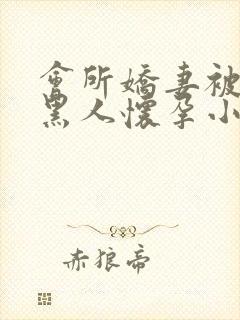 會所嬌妻被
黑人懷孕小
赤狼帝